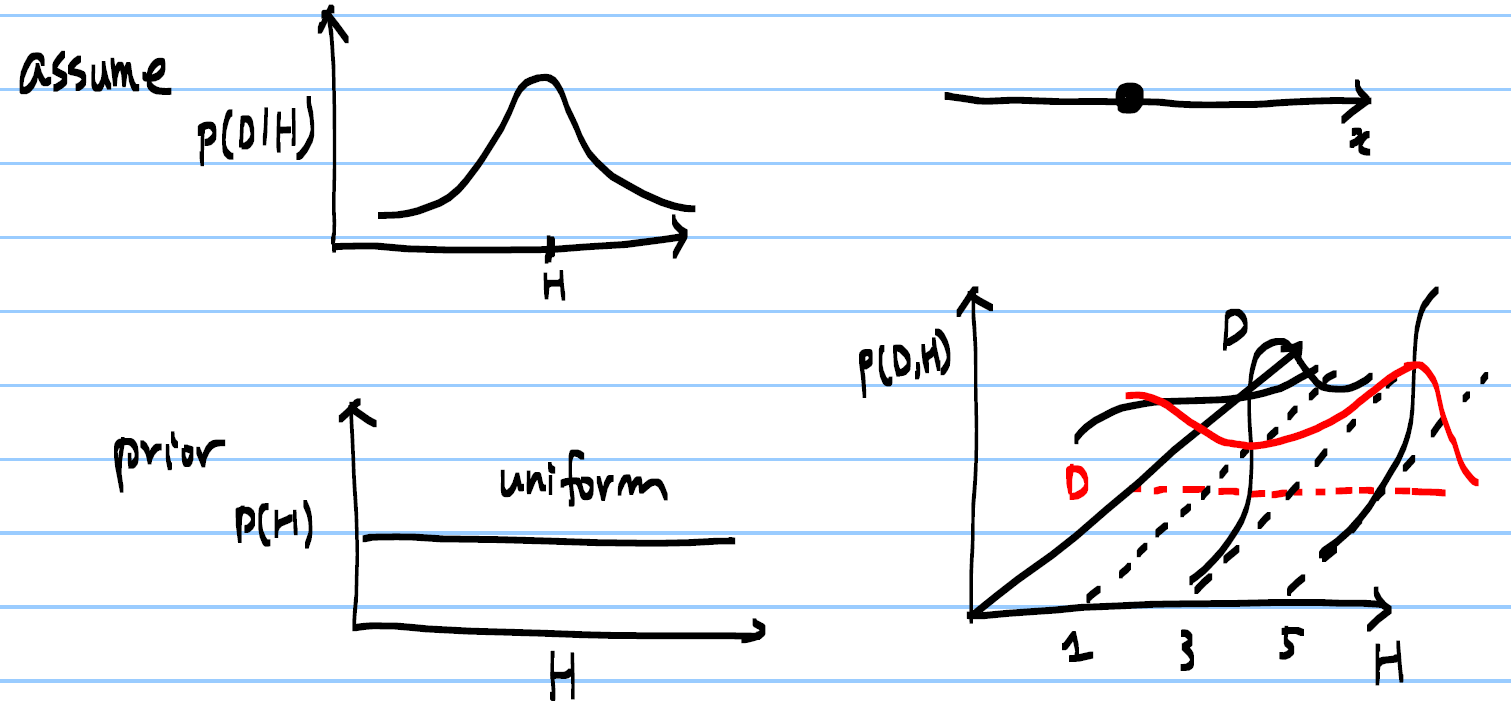 assume
p(D|H)
H
x
prior
uniform
P(H)
H
p(D,H)
D
D
1 3 5 H